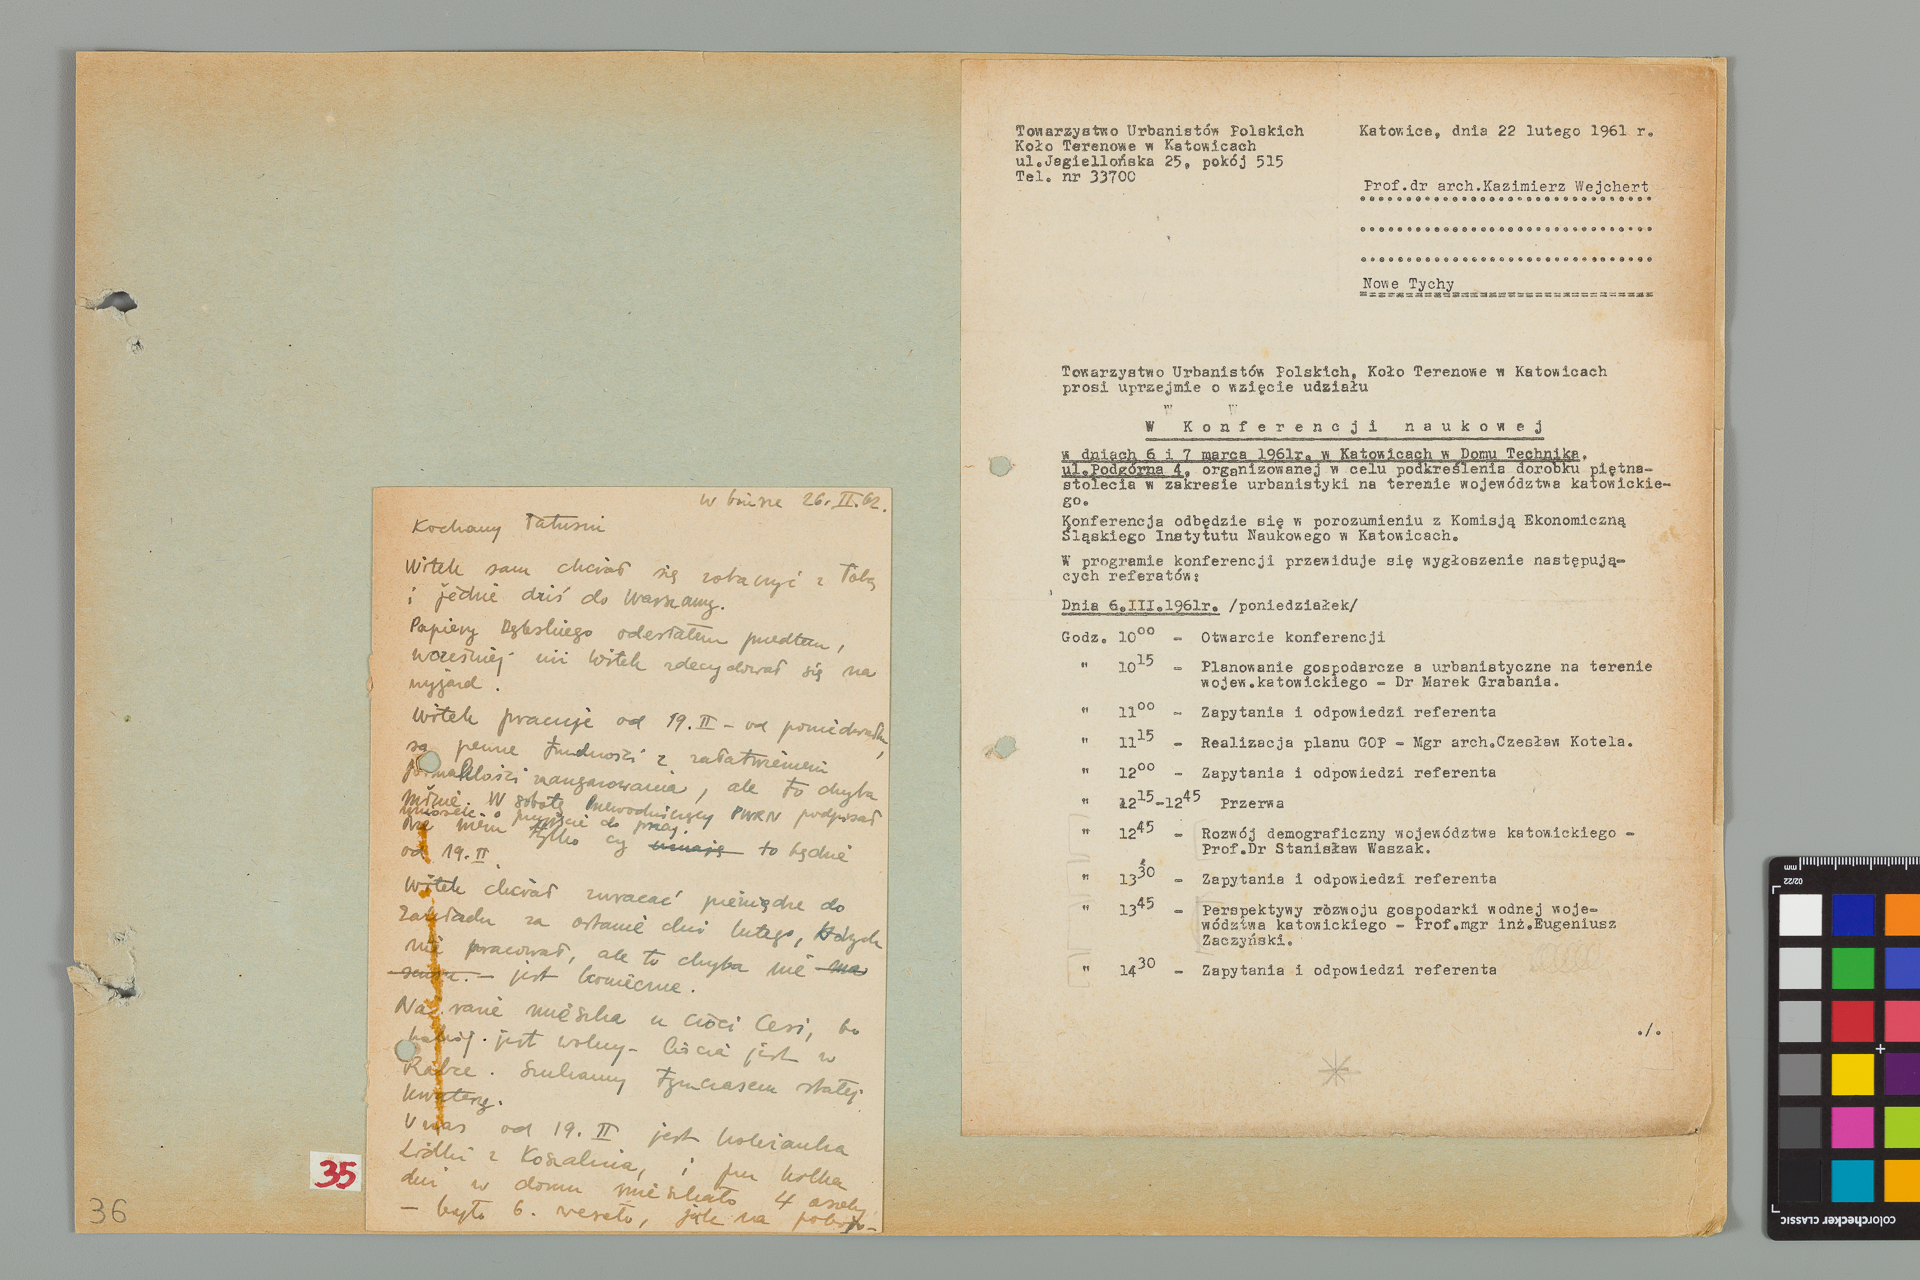 w biurze 26.II.62.
Kochany Tatusiu
Witek sam chciał się zobaczyć z Tobą
i jedzie dziś do Warszawy.
Papiery Dębskiego odesłałem przedtem,
wcześniej nii Witek zdecydował się na
wyjazd.
Witek pracuje od 19.II – od poniedziałku,
są pewne trudności z załatwieniem
formalności zaangażowania, ale to chyba
minie. W sobotę Przewodniczący PWRN podpisał
wniosek o przyjęcie do pracy.
nie wiem tylko czy to będzie
od 19.II.
Witek chciał zwracać pieniądze do
Zakładu za ostanie dni lutego, których
nie pracował, ale to chyba nie ma
sensu. – jest konieczne.
Na razie mieszka u Cioci Cesi, bo
pokój jest wolny – Ciocia jest w
Rabce. Szukamy tymczasem stałej
kwatery.
U nas od 19.II jest koleżanka
Lidki z Koszalina, i
dni w domu mieszkało 4 osoby
– było b. wesoło, jak na
35
36
Towarzystwo Urbanistów Polskich
Koło Terenowe w Katowicach
ul.Jagiellońska 25, pokój 515
Tel. nr 33700
Katowice, dnia 22 lutego 1961 r.
Prof.dr arch.Kazimierz Wejchert
Nowe Tychy
Towarzystwo Urbanistów Polskich, Koło Terenowe w Katowicach
prosi uprzejmie o wzięcie udziału
W Konferencji naukowej
w dniach 6 i 7 marca 1961r. w Katowicach w Domu Technika,
ul.Podgórna 4, organizowanej w celu podkreślenia dorobku piętna-
stolecia w zakresie urbanistyki na terenie województwa katowickie-
go.
Konferencja odbędzie się w porozumieniu z Komisją Ekonomiczną
Śląskiego Instytutu Naukowego w Katowicach.
W programie konferencji przewiduje się wygłoszenie następują-
cych referatów:
Dnia 6.III.1961r. /poniedziałek/
Godz. 10⁰⁰ – Otwarcie konferencji
" 10¹⁵ – Planowanie gospodarcze a urbanistyczne na terenie
wojew.katowickiego – Dr Marek Grabania.
" 11⁰⁰ – Zapytania i odpowiedzi referenta
" 11¹⁵ – Realizacja planu GOP – Mgr arch.Czesław Kotela.
" 12⁰⁰ – Zapytania i odpowiedzi referenta
" 12¹⁵-12⁴⁵ Przerwa
" 12⁴⁵ – Rozwój demograficzny województwa katowickiego –
Prof.Dr Stanisław Waszak.
" 13³⁰ – Zapytania i odpowiedzi referenta
" 13⁴⁵ – Perspektywy rozwoju gospodarki wodnej woje-
wództwa katowickiego – Prof.mgr inż.Eugeniusz
Zaczyński.
" 14³⁰ – Zapytania i odpowiedzi referenta
./.
colorchecker CLASSIC